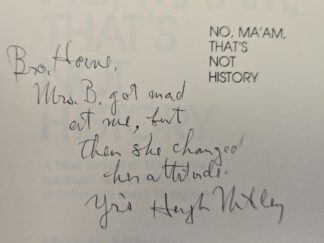 NO, MA'AM,
THAT'S
NOT
HISTORY
Bro. Horne,
Mrs. B. got mad
at me, but
then she changed
her attitude.
Yrs Hugh Nibley